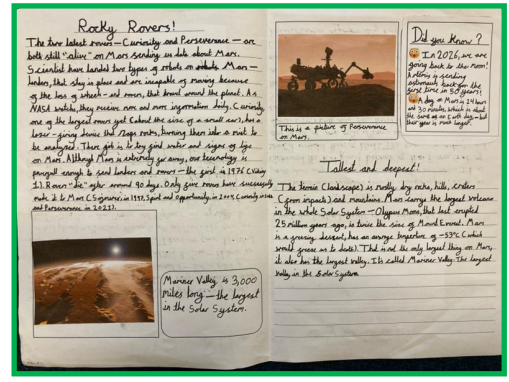 Rocky Rovers!
The two latest rovers — Curiosity and Perseverance — are
both still "alive" on Mars sending us data about Mars.
Scientist have landed two types of robots on Mars —
landers, that stay in place and are incapable of moving because
of the loss of wheels — and rovers, that travel around the planet. As
NASA watch, they receive more and more information daily. Curiosity,
one of the largest rovers yet (about the size of a small car), has a
laser-giving device that zaps rocks, turning them into a mist to
be analysed. There job is to try find water and signs of life
on Mars. Although Mars is extremely far away, our technology is
powerful enough to send landers and rovers — the first in 1976 (Viking
1). Rovers "die" after around 90 days. Only five rovers have successfully
made it to Mars (Sojourner in 1997, Spirit and Opportunity, in 2004, Curiosity in
and Perseverance in 2021).
Mariner Valley is 3,000
miles long — the largest
in the Solar System.
This is a picture of Perseverance
on Mars.
Did you Know?
In 2026, we are
going back to the Moon!
Artemis is sending
astronauts back for the
first time in 50 years!
A day on Mars is 24 hours
and 30 minutes, which is about
the same as an Earth day — but
their year is much longer.
Tallest and deepest!
The terrain (landscape) is mostly dry rocks, hills, craters
(from impacts) and mountains. Mars carry the largest volcano
in the whole Solar System — Olypus Mons, that last erupted
25 million years ago, is twice the size of Mound Everest. Mars
is a freezing dessert, has an average temperture of -53°C (which
would freeze us to death). That is not the only largest thing on Mars,
it also has the largest valley. It's called Mariner Valley. The largest
valley in the Solar System